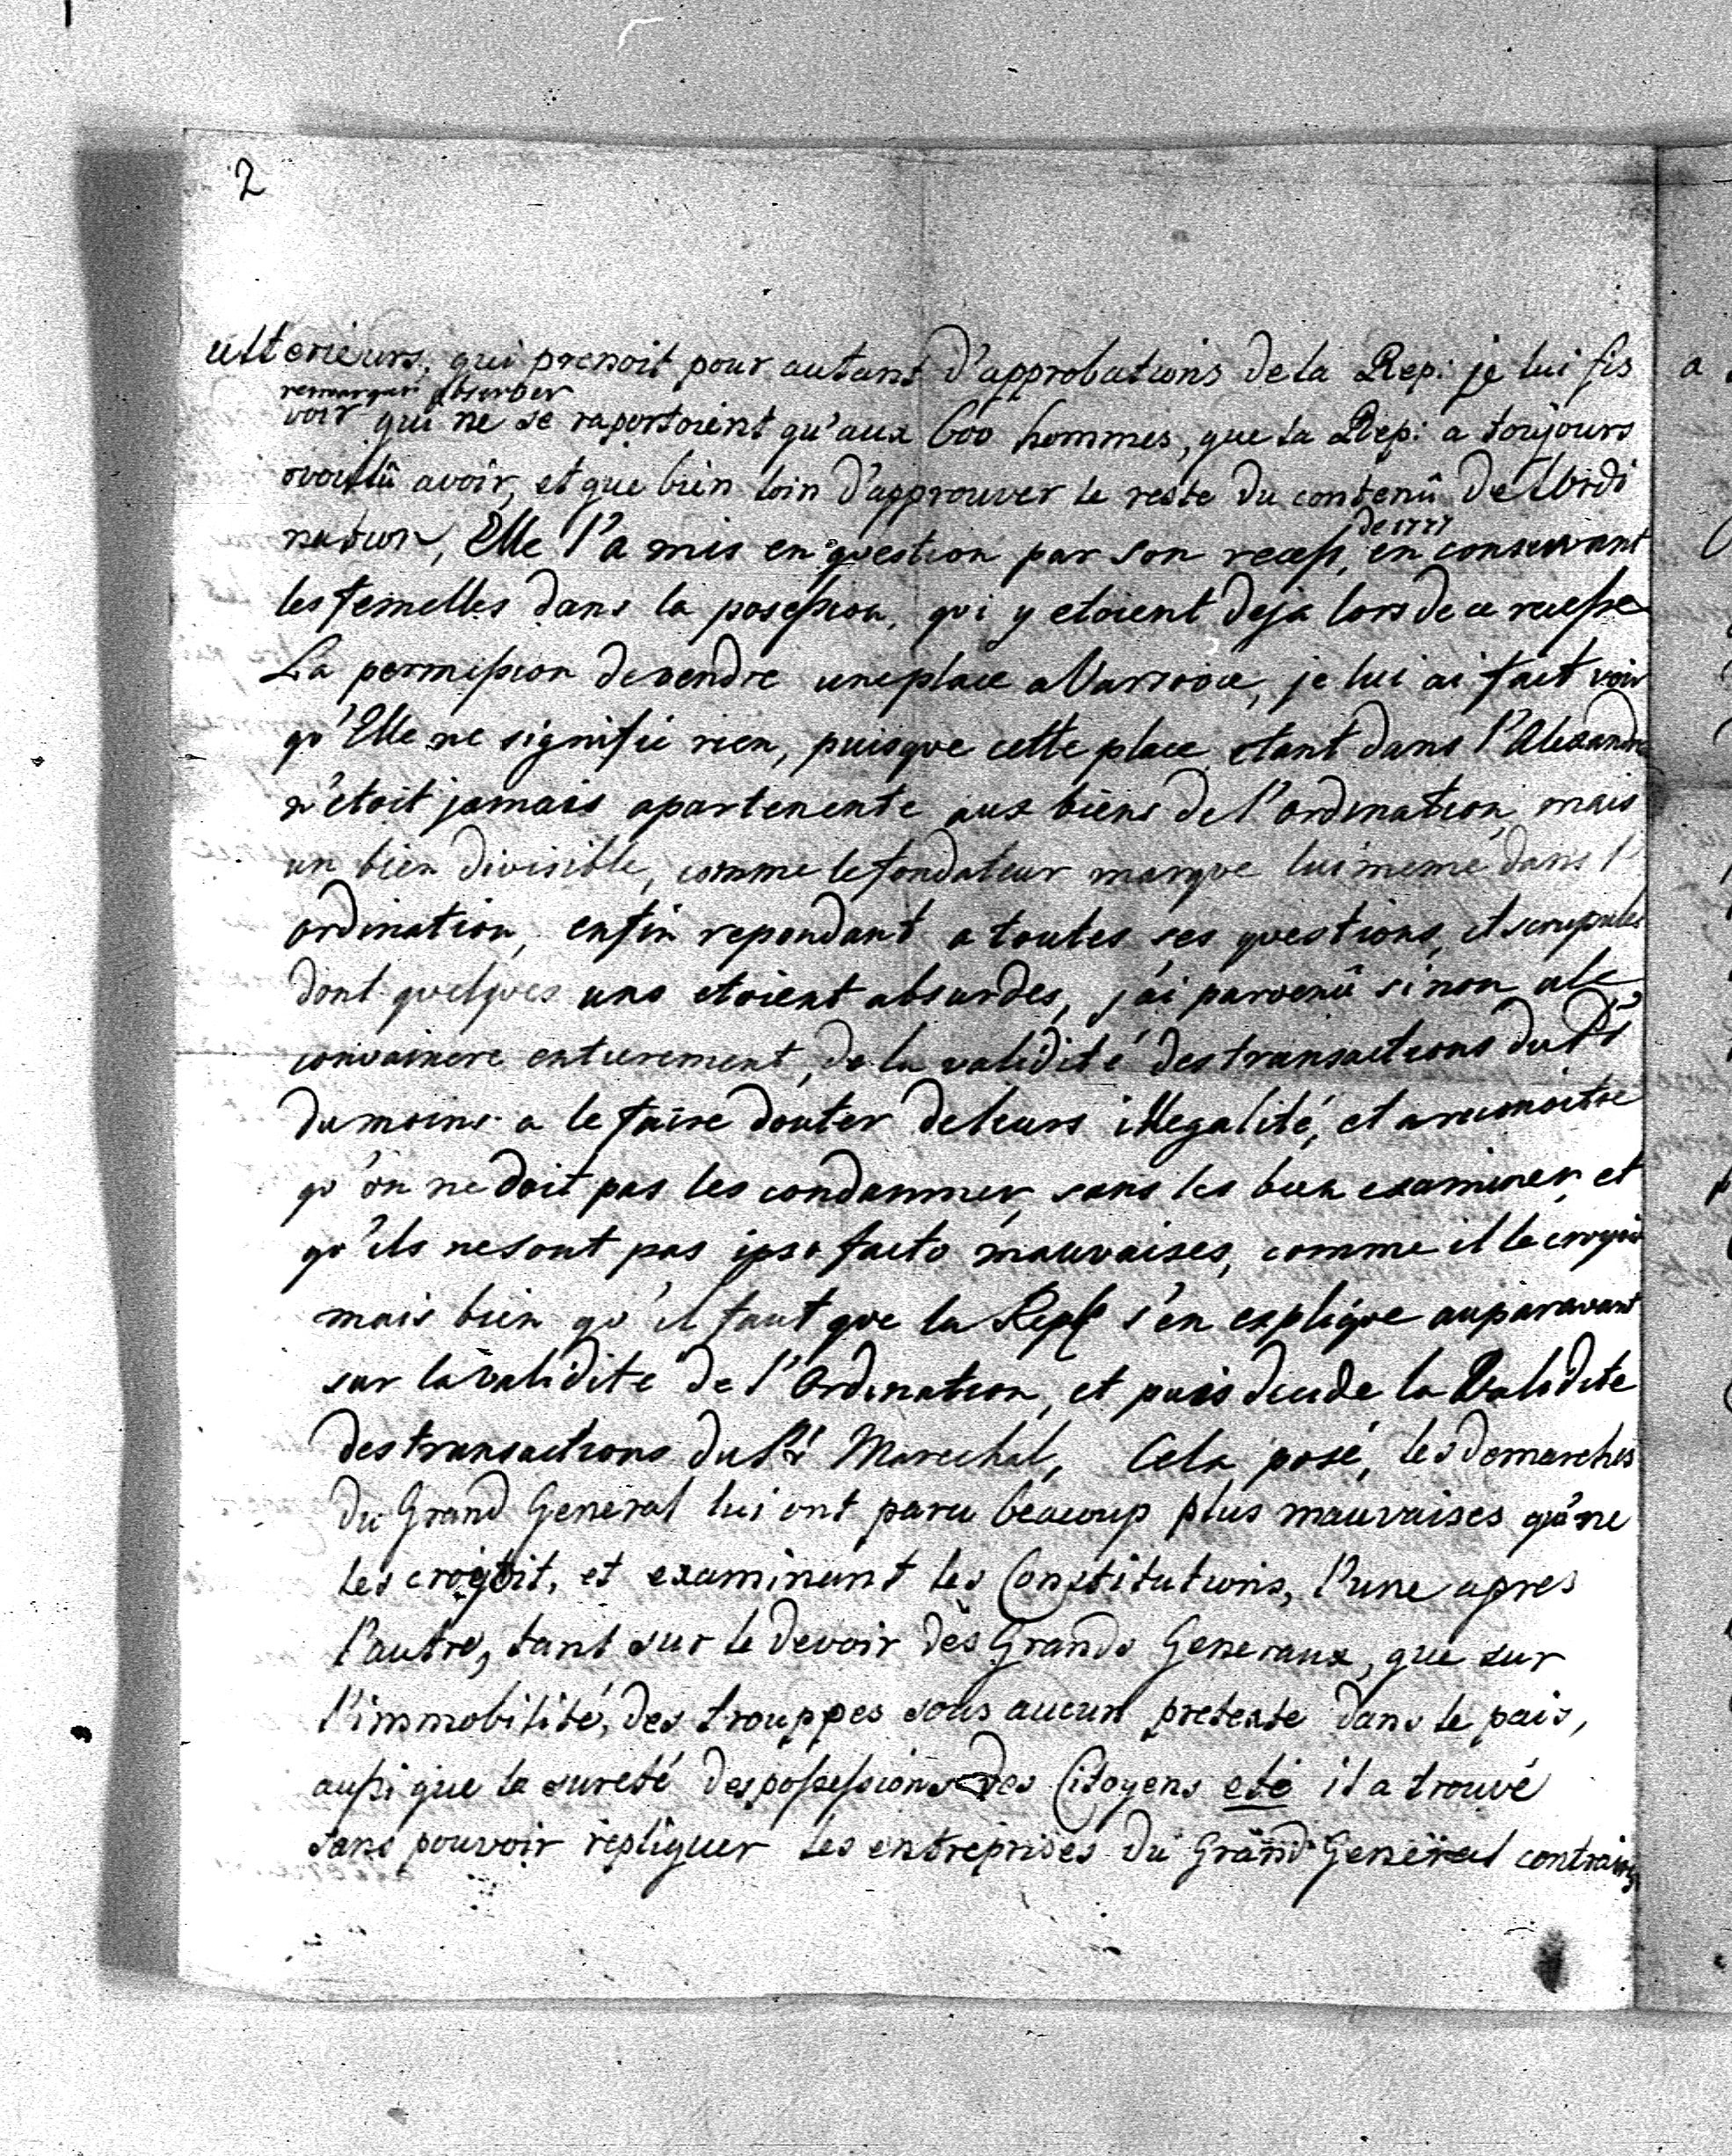 2
ulterieurs, qui prenoit pour autant d'approbations de la Rep: je lui fis
remarquer observer
voir qui ne se raportoient qu'aux 600 hommes, que la Rep: a toujours
voulû avoir, et que bien loin d'approuver le reste du contenû de l'ordi
de 1777
nation, Elle l'a mis en question par son recess, en conservant
les femelles dans la posession, qui y etoient deja lors de ce recesse
La permission de vendre une place a Varsovie, je lui ai fait voir
qu'Elle ne signifie rien, puisque cette place etant dans l'Alexandre
n'etoit jamais apartenente aux biens de l'ordination, mais
un bien divisible, comme le fondateur marque lui meme dans l'
ordination, enfin repondant a toutes ses questions, et scrupules
dont quelques uns etoient absurdes, j'ai parvenû si non a le
convaincre entierement, de la validité des transactions du Pr
du moins a le faire douter de leurs illegalité, et a reconoitre
qu'on ne doit pas les condamner, sans les bien examiner, et
qu'ils ne sont pas ipso facto mauvaises, comme il le croyoit
mais bien qu'il faut que la Rep s'en explique auparavant
sur la validite de l'Ordination, et puis decide la Validite
des transactions du Pr Marechal, Cela posé, les demarches
du Grand General lui ont paru beacoup plus mauvaises qu'ne
les croyoit, et examinant les Constitutions, l'une apres
l'autre, tant sur le devoir des Grands Generaux, que sur
l'immobilité, des trouppes sous aucun pretexte dans le pais,
aussi que la sureté des possessions des Citoyens etc il a trouvé
sans pouvoir repliquer les entreprises du Grand General contraires